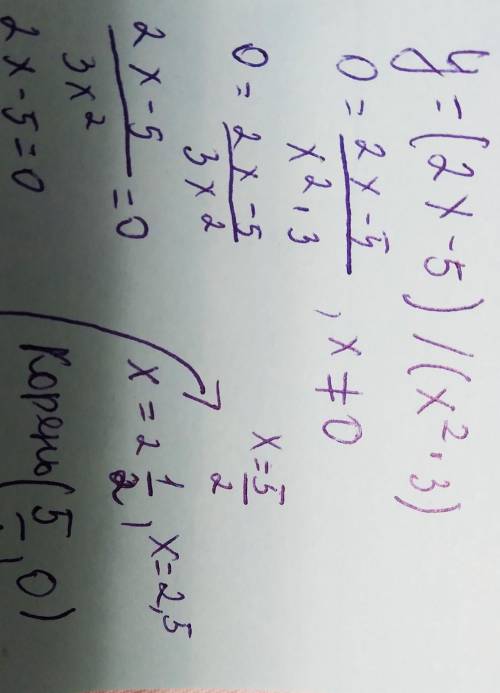 y = (2x-5) / (x²·3)
0 = \frac{2x-5}{x²·3}, x ≠ 0
0 = \frac{2x-5}{3x²}
\frac{2x-5}{3x²} = 0
2x-5=0
x = \frac{5}{2}
x = 2\frac{1}{2}, x = 2,5
Корень (5, 0)